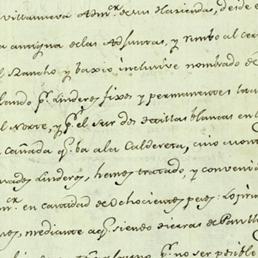 villanueva Admor. de mi Hacienda, desde e
a antigua de las Adjuntas, y rumbo al cer
l Rancho y baxio inclusive nombrado de
lando pr. Linderos fixos y permanentes
al Norte, y pr. el Sur dos esillas blancas en
a cañada qe. ba a la Caldereta, cuio monte
nados Linderos, hemos tratado, y convenid
mr. en cantidad de ochocientos pesos
es, mediante a qe. siendo tierras de
pr. no ser posible